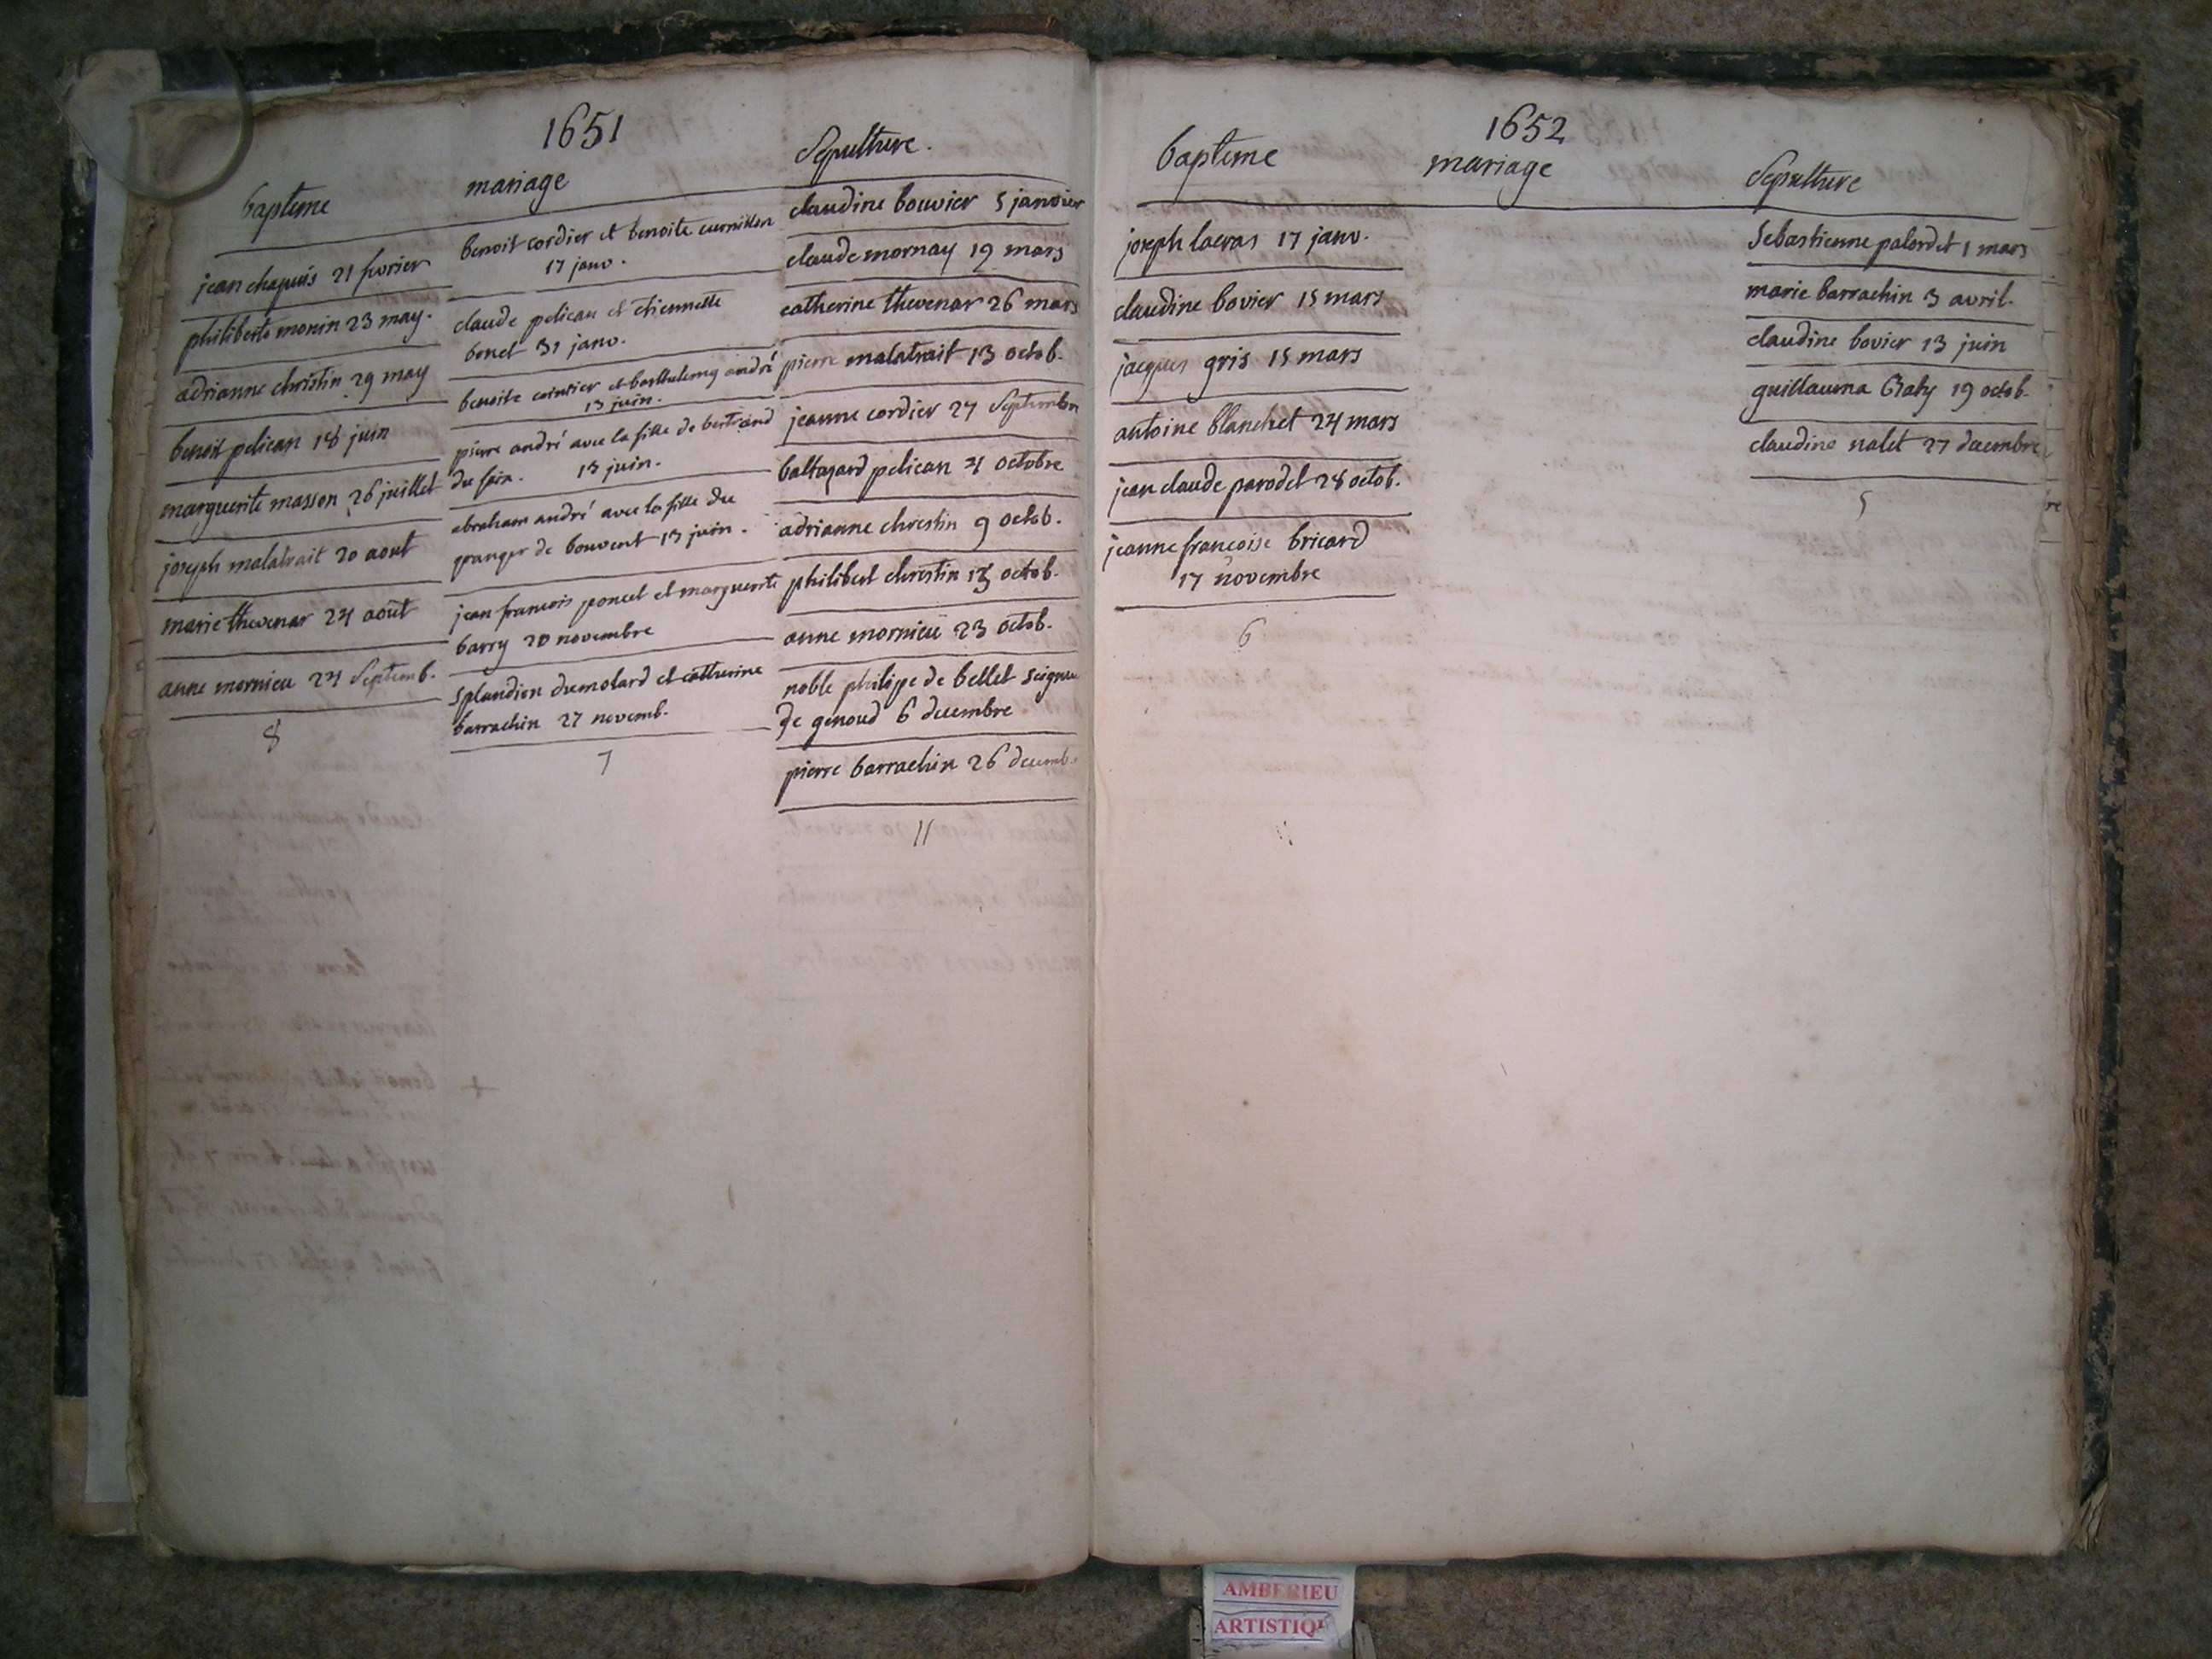 1651
bapteme
jean chapuis 21 fevrier
philiberte monin 23 may.
adrianne christin 29 may
benoit pelican 18 juin
marguerite masson 26 juillet
joseph malatrait 20 aout
marie thevenar 24 aout
anne mornieu 24 Septemb.
8
mariage
benoit cordier et benoite curnillon
17 janv.
claude pelican et etiennette
bonet 31 janv.
benoite cointier et barthelemy andré
13 juin.
pierre andré avec la fille de bertrand
du foin. 13 juin.
abraham andré avec la fille du
granger de bouvent 13 juin.
jean francois poncet et marguerite
barry 20 novembre
Splandien dumolard et catherine
barrachin 27 novemb.
7
Sepulture.
claudine bouvier 5 janvier
claude mornay 19 mars
catherine thevenar 26 mars
pierre malatrait 13 octob.
jeanne cordier 27 Septembre
baltazard pelican 4 octobre
adrianne chrestin 9 octob.
philibert chrestin 18 octob.
anne mornieu 23 octob.
noble philippe de bellet Seigneu
de genoud 6 decembre
pierre barrachin 26 decemb.
11
1652
bapteme
joseph lacras 17 janv.
claudine bovier 15 mars
jacques gris 15 mars
antoine blanchet 24 mars
jean claude parodet 28 octob.
jeanne francoise bricard
17 novembre
6
mariage
Sepulture
Sebastienne palordet 1 mars
marie barrachin 3 avril.
claudine bovier 13 juin
guillauma 19 octob.
claudine nalet 27 decembre
5
AMBERIEU
ARTISTIQU